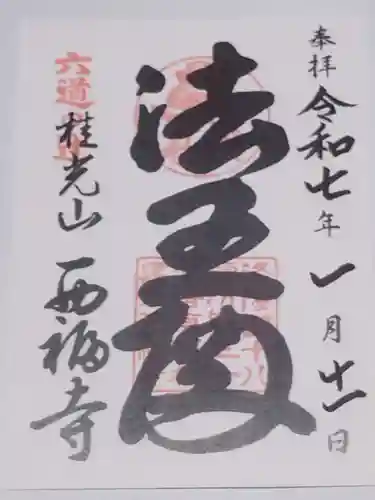 奉拝
令和七年一月十一日
法王殿
六道
桂光山
西福寺